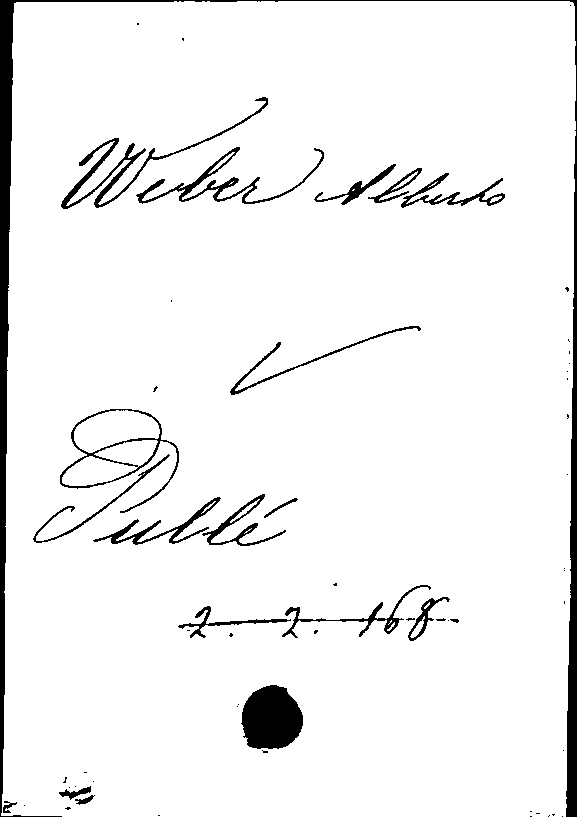 Weber Alberto
Publié
2. 2. 168